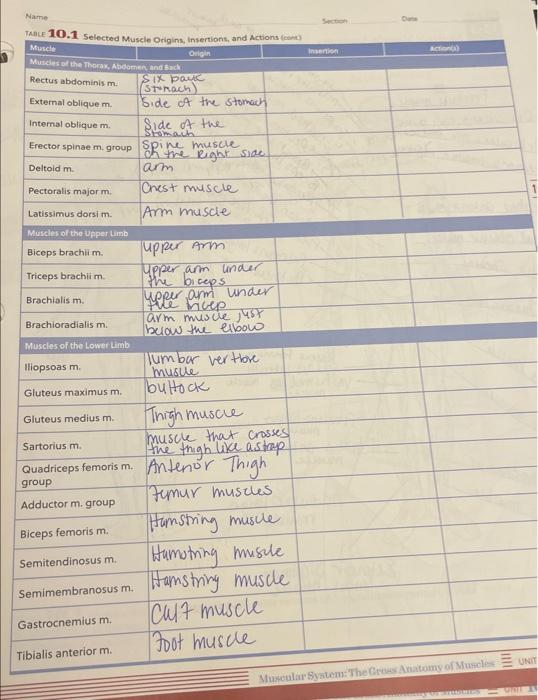 Name
Section
Date
TABLE 10.1 Selected Muscle Origins, Insertions, and Actions (cont)
Muscle Origin Insertion Action(s)
Muscles of the Thorax, Abdomen, and Back
Rectus abdominis m. Six pack
(Stomach)
External oblique m. Side of the stomach
Internal oblique m. Side of the
stomach
Erector spinae m. group Spine muscle
on the Right side
Deltoid m. arm
Pectoralis major m. Chest muscle
Latissimus dorsi m. Arm muscle
Muscles of the Upper Limb
Biceps brachii m. upper Arm
Triceps brachii m. upper arm under
the biceps
Brachialis m. upper arm under
the bicep
Brachioradialis m. arm muscle just
below the elbow
Muscles of the Lower Limb
Iliopsoas m. lumbar
muscle
Gluteus maximus m. buttock
Gluteus medius m. Thigh muscle
Sartorius m. muscle that crosses
the thigh like a strap
Quadriceps femoris m.
group Anterior Thigh
Adductor m. group Femur muscles
Biceps femoris m. Hamstring muscle
Semitendinosus m. Hamstring muscle
Semimembranosus m. Hamstring muscle
Gastrocnemius m. Calf muscle
Tibialis anterior m. Foot muscle
Muscular System: The Gross Anatomy of Muscles UNIT